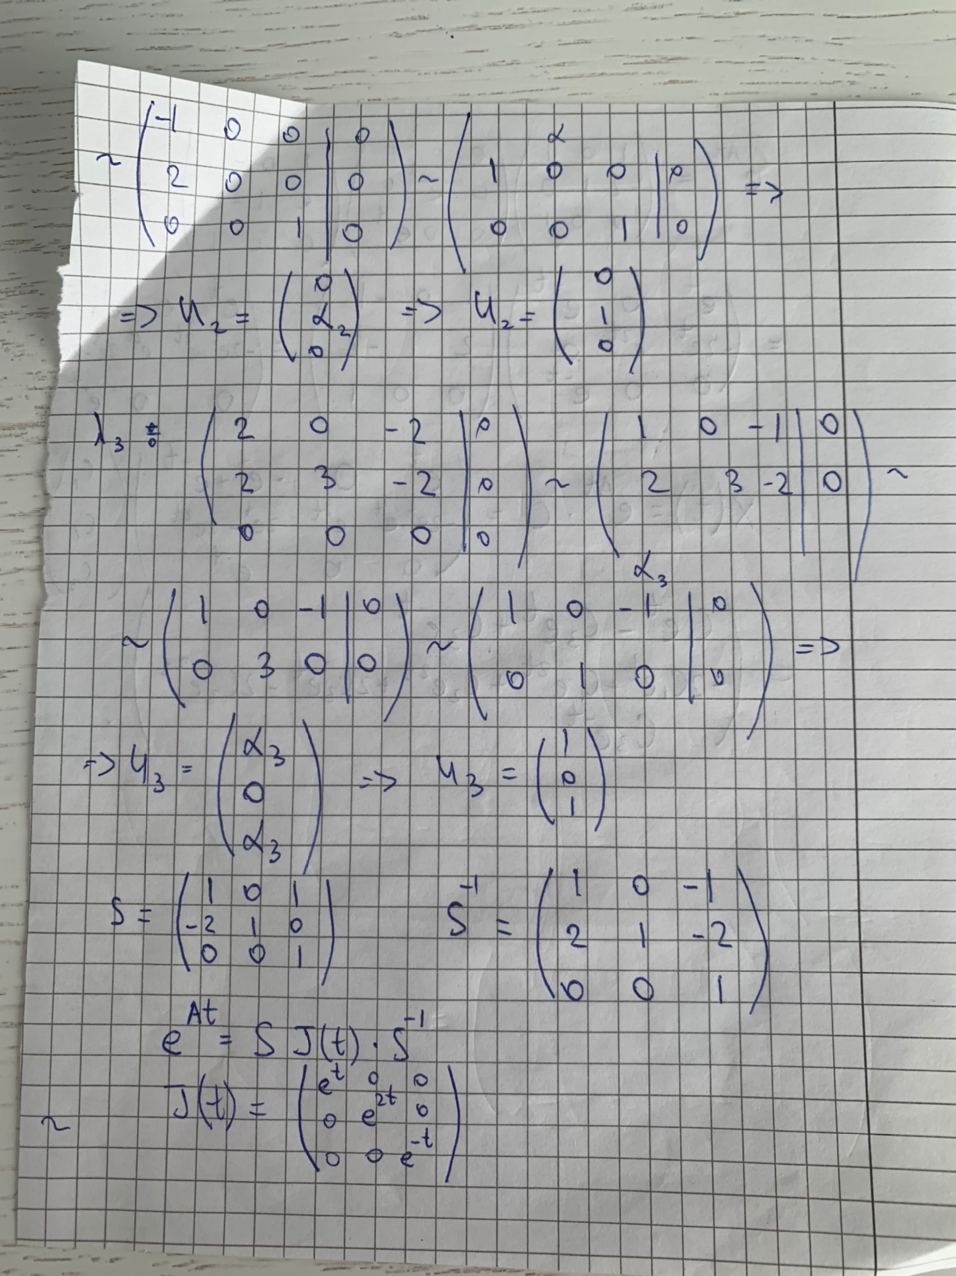 ~ (-1 0 0 | 0; 2 0 0 | 0; 0 0 1 | 0) ~ (α; 1 0 0 | 0; 0 0 1 | 0) =>
=> u₂ = (0; α₂; 0) => u₂ = (0; 1; 0)
λ₃ : (2 0 -2 | 0; 2 3 -2 | 0; 0 0 0 | 0) ~ (1 0 -1 | 0; 2 3 -2 | 0) ~
α₃
~ (1 0 -1 | 0; 0 3 0 | 0) ~ (1 0 -1 | 0; 0 1 0 | 0) =>
=> u₃ = (α₃; 0; α₃) => u₃ = (1; 0; 1)
S = (1 0 1; -2 1 0; 0 0 1) S⁻¹ = (1 0 -1; 2 1 -2; 0 0 1)
e^{At} = S J(t) · S⁻¹
~ J(t) = (e^t 0 0; 0 e^{2t} 0; 0 0 e^{-t})